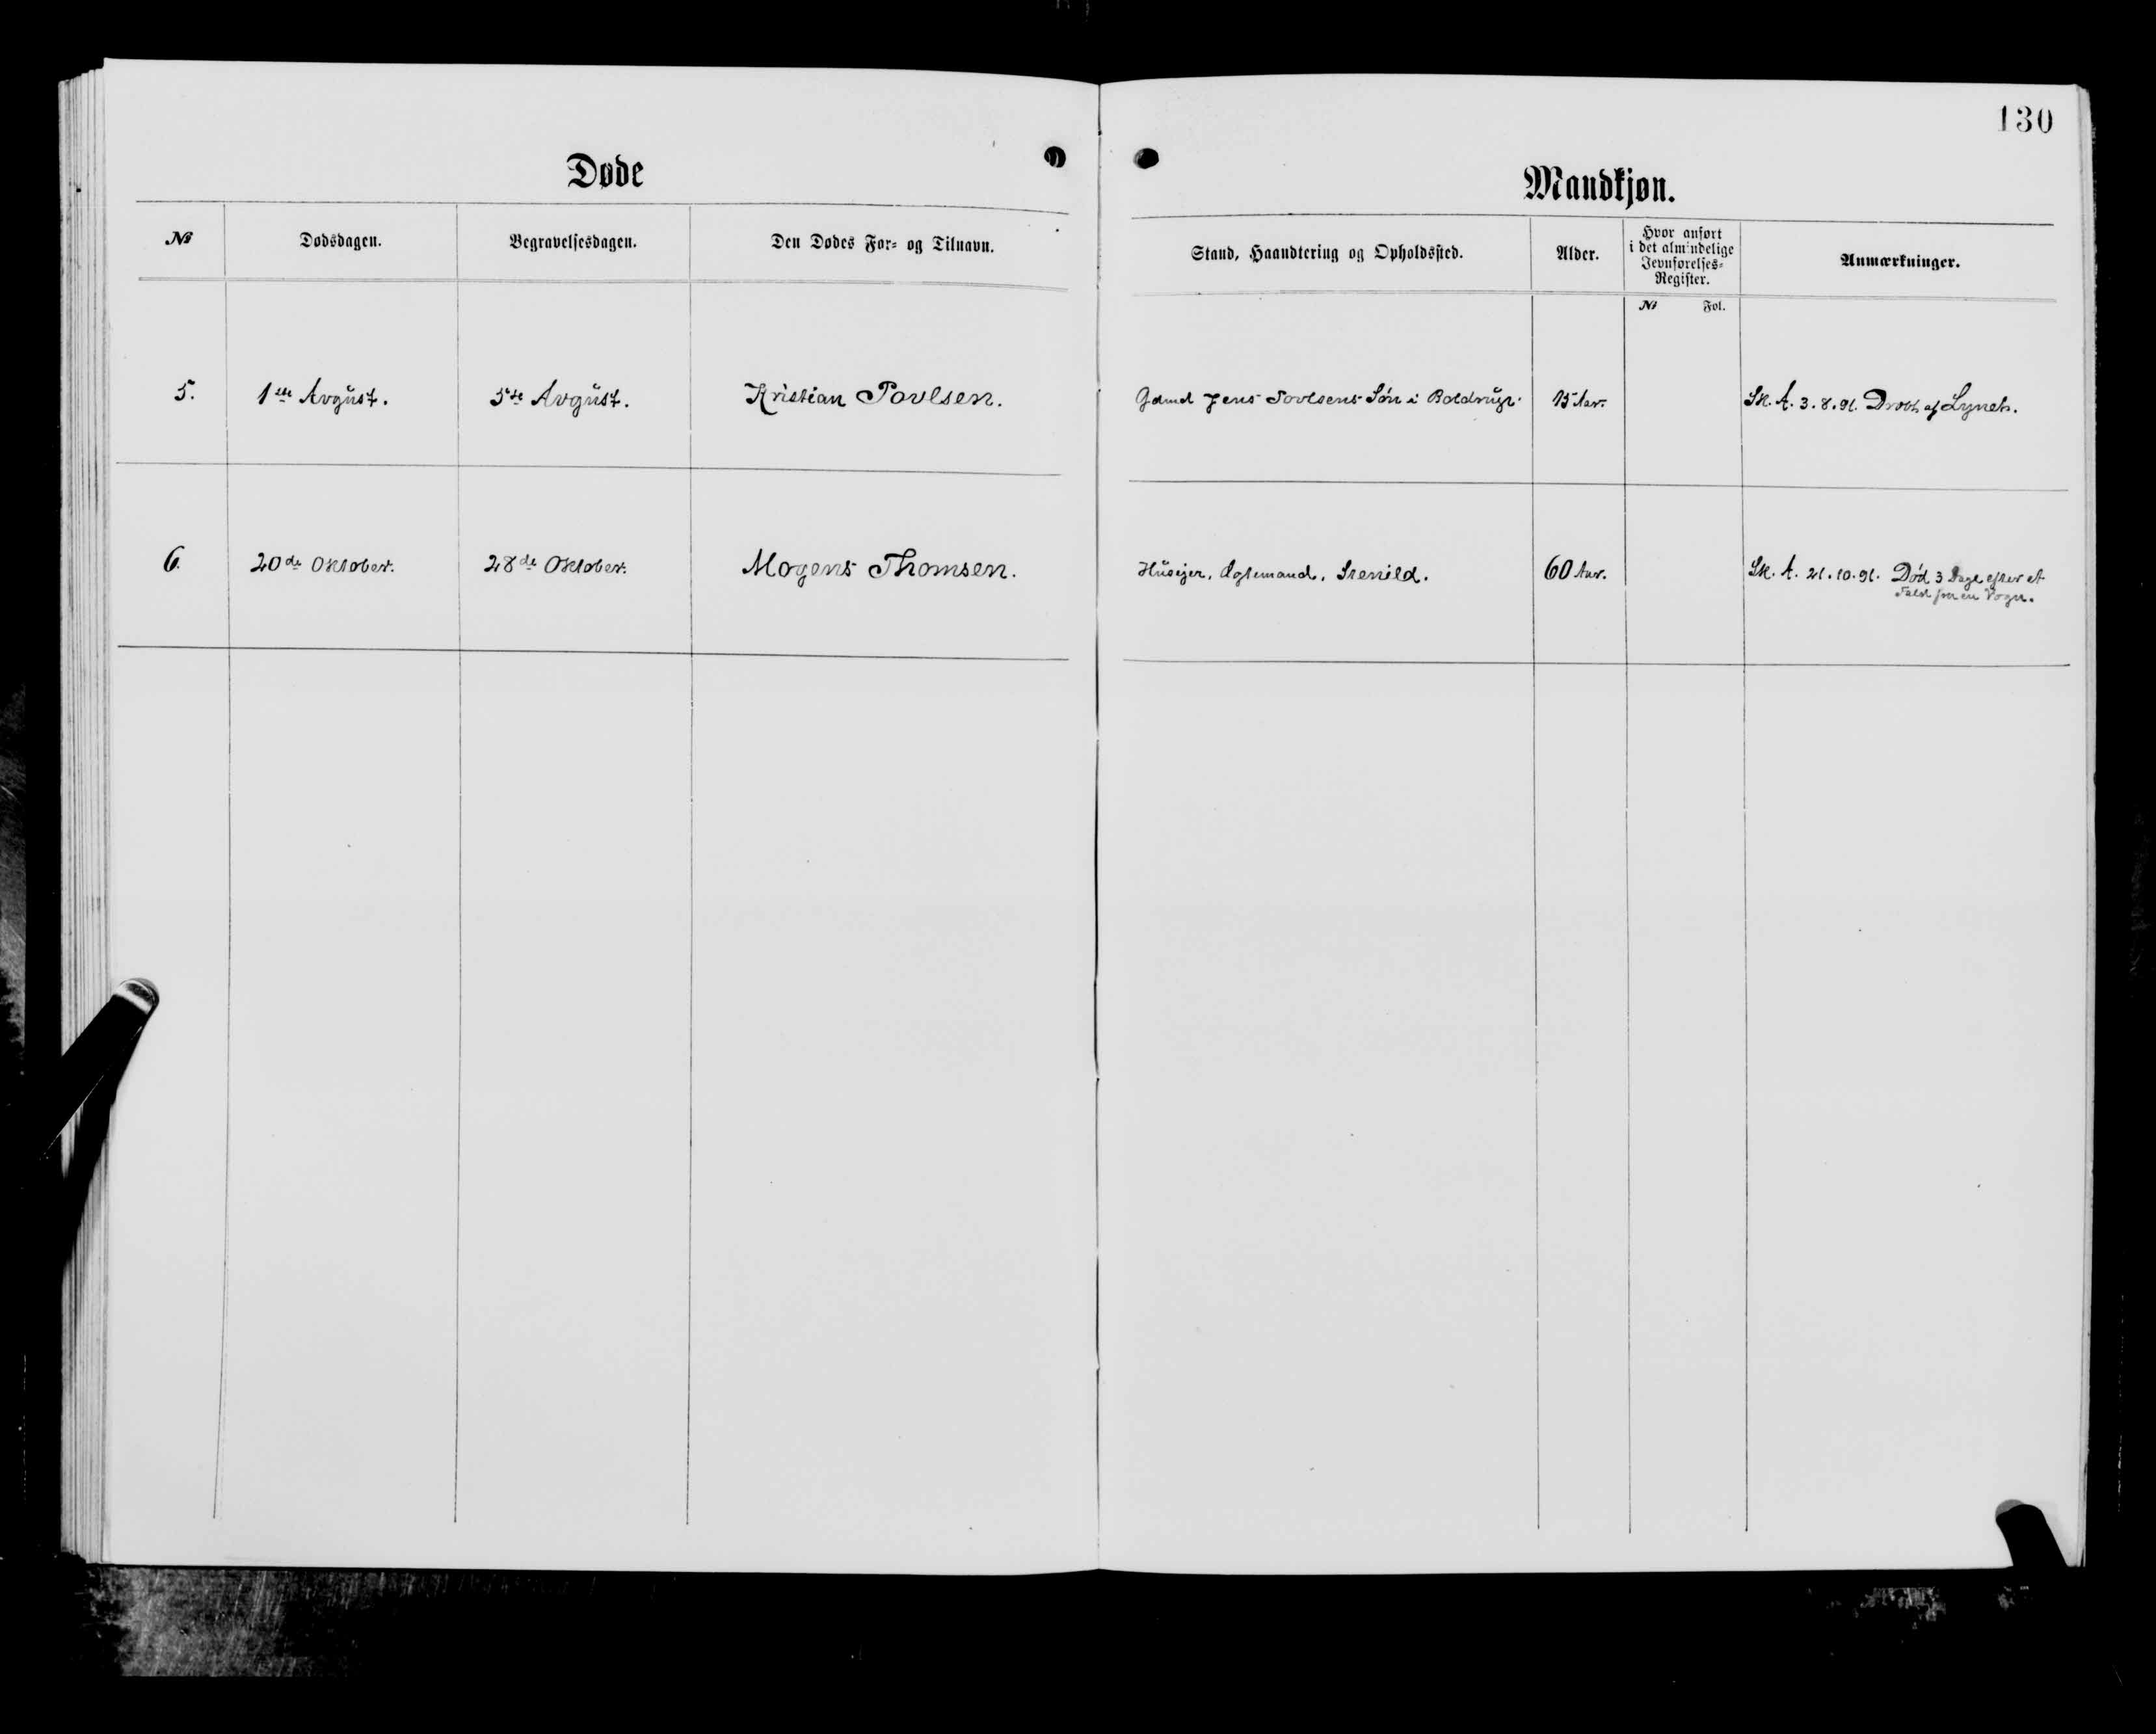 130
Døde
Mandkjøn.
№
Dødsdagen.
Begravelsesdagen.
Den Dødes For- og Tilnavn.
Stand, Haandtering og Opholdssted.
Alder.
Hvor anført
i det almindelige
Jevnførelses-
Register.
№ Fol.
Anmærkninger.
5.
1ste Avgust.
5te Avgust.
Kristian Povlsen.
Gdmd Jens Povlsens Søn i Boldrup.
15 Aar.
Sk. A. 3.8.91. Dræbt af Lynet.
6.
20de Oktober.
28de Oktober.
Mogens Thomsen.
Husejer, Ægtemand, Stenild.
60 Aar.
Sk. A. 21.10.91. Død 3 Dage efter et
Fald fra en Vogn.